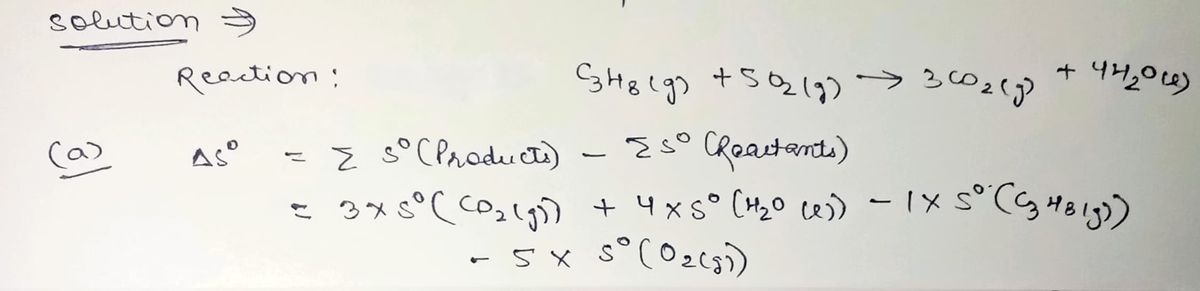 solution ⇒
Reaction: C₃H₈(g) + 5O₂(g) → 3CO₂(g) + 4H₂O(l)
(a) ΔS° = Σ S°(Products) - ΣS° (Reactants)
= 3×S°(CO₂(g)) + 4×S°(H₂O(l)) - 1×S°(C₃H₈(g))
- 5 × S°(O₂(g))